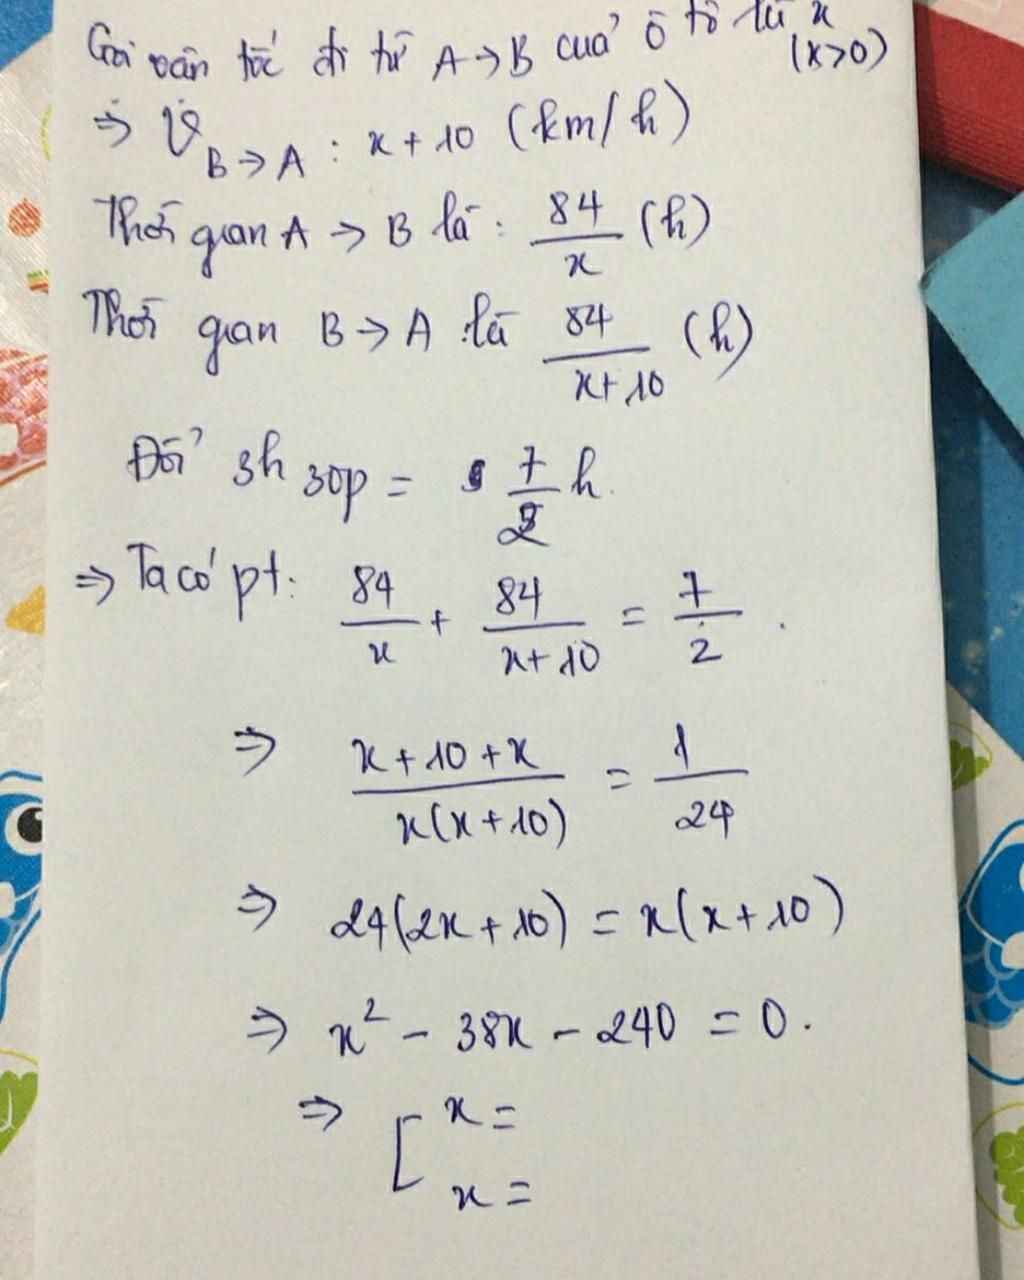 Gọi vận tốc đi từ A → B của ô tô là x (x>0)
⇒ V B→A : x + 10 (km/h)
Thời gian A → B là : 84/x (h)
Thời gian B → A là 84/(x+10) (h)
Đổi 3h 30p = 7/2 h.
⇒ Ta có pt: 84/x + 84/(x+10) = 7/2 .
⇒ (x+10+x)/(x(x+10)) = 1/24
⇒ 24(2x+10) = x(x+10)
⇒ x² - 38x - 240 = 0.
⇒ [ x =
x =